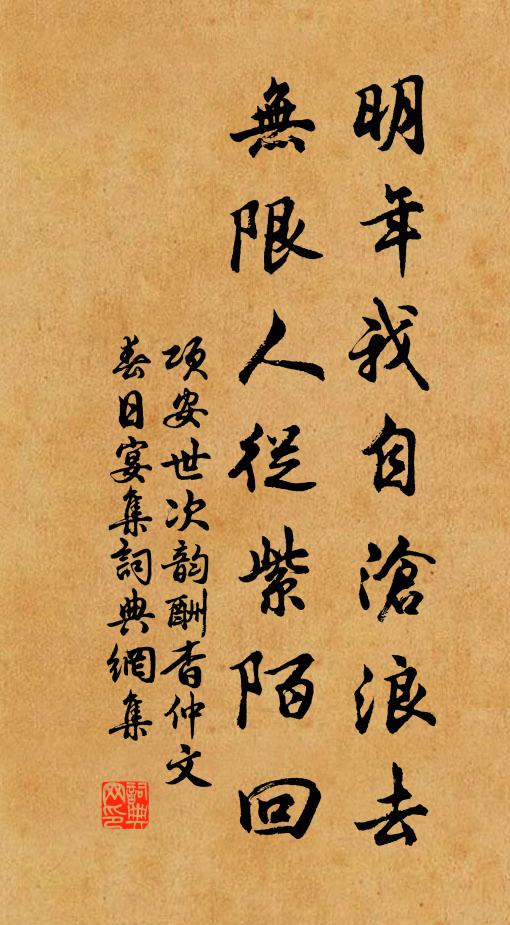 明年我自滄浪去
無限人從紫陌回
項安世次韵酬杳仲文
春日宴集詞典網集
詞典網印